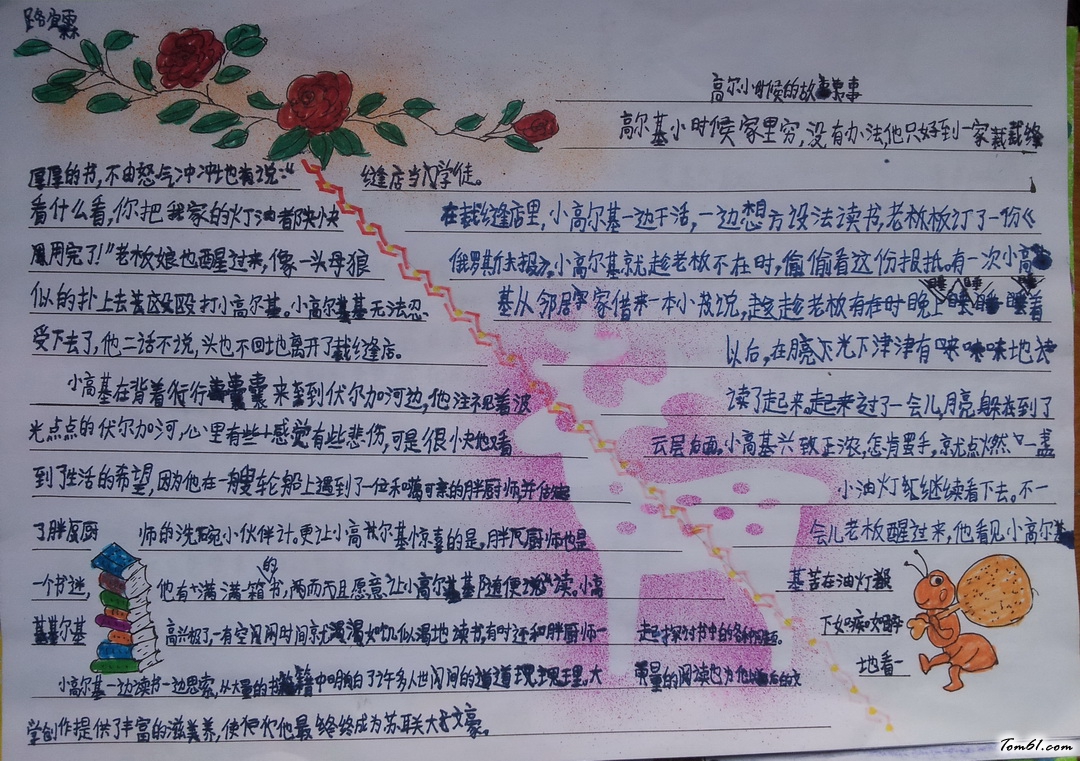 高尔小时候的故事
高尔基小时候家里穷,没有办法,他只好到一家裁缝
缝店当学徒。
在裁缝店里,小高尔基一边干活,一边想方设法读书,老板板订了一份《
俄罗斯快报》。小高尔基就趁老板不在时,偷偷看这份报纸。有一次小高
基从邻居家借来一本小说,趁老板在时晚上睡着
以后,在月亮下光下津津有味地
读了起来。起来过了一会儿,月亮躲到了
云层右面。小高基兴致正浓,怎肯罢手,就点燃一盏
小油灯继续看下去。不一
会儿老板醒过来,他看见小高尔
基苦在油灯
下如痴如醉
地看一
厚厚的书,不由怒气冲冲地说:“
看什么看,你把我家的灯油都快
用完了!”老板娘也醒过来,像一头母狼
似的扑上去殴打小高尔基。小高尔基无法忍
受下去了,他二话不说,头也不回地离开了裁缝店。
小高基在背着行行囊来到伏尔加河边,他注视着波
光点点的伏尔加河,心里有些感觉有些悲伤,可是很快他看
到了生活的希望,因为他在一艘轮船上遇到了一位和蔼可亲的胖厨师,并
了胖厨 师的洗碗小伙伴计。更让小高尔基惊喜的是,胖厨师也是
一个书迷, 他有满满一箱的书,而且愿意让小高尔基随便读。小高
基尔基 高兴极了,一有空闲时间就如饥似渴地读书,有时还和胖厨师一起探讨书中的各种问题。
小高尔基一边读书一边思索,从大量的书籍中明白了许多人世间的道理。大量的阅读也为他以后的文
学创作提供了丰富的滋养,使他最终成为苏联大文豪。
Tom61.com